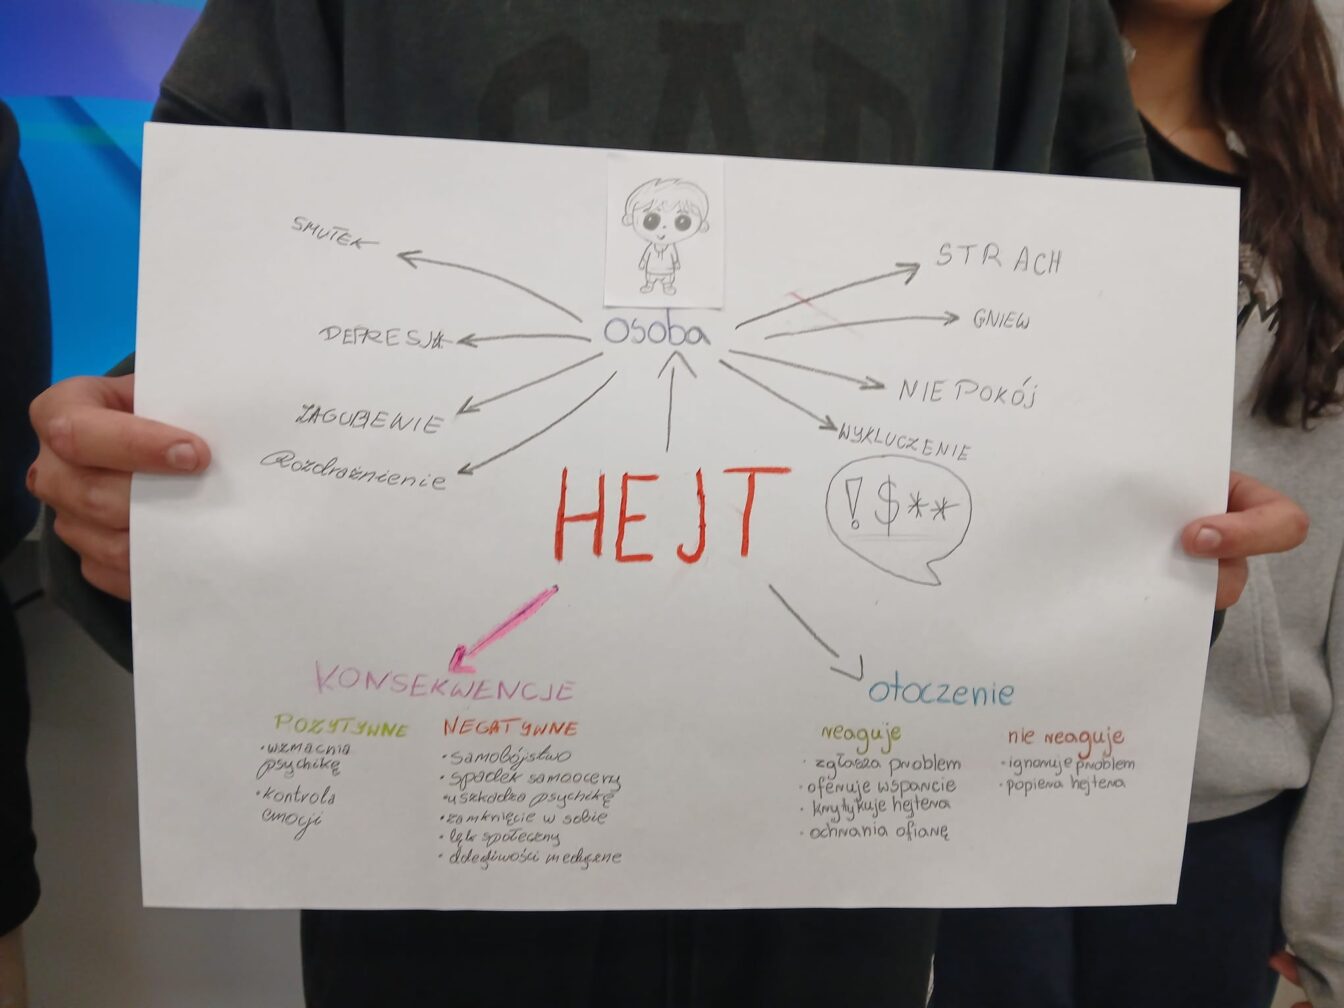 GAP
SMUTEK
DEPRESJA
ZAGUBIENIE
Rozdrażnienie
osoba
STRACH
GNIEW
NIEPOKÓJ
WYKLUCZENIE
!$**
HEJT
KONSEKWENCJE
POZYTYWNE
• wzmacnia
psychikę
• kontrola
emocji
NEGATYWNE
• samobójstwo
• spadek samooceny
• uszkadza psychikę
• zamknięcie w sobie
• lęk społeczny
• dolegliwości medyczne
otoczenie
reaguje
• zgłasza problem
• oferuje wsparcie
• krytykuje hejtera
• ochrania ofiarę
nie reaguje
• ignoruje problem
• popiera hejtera